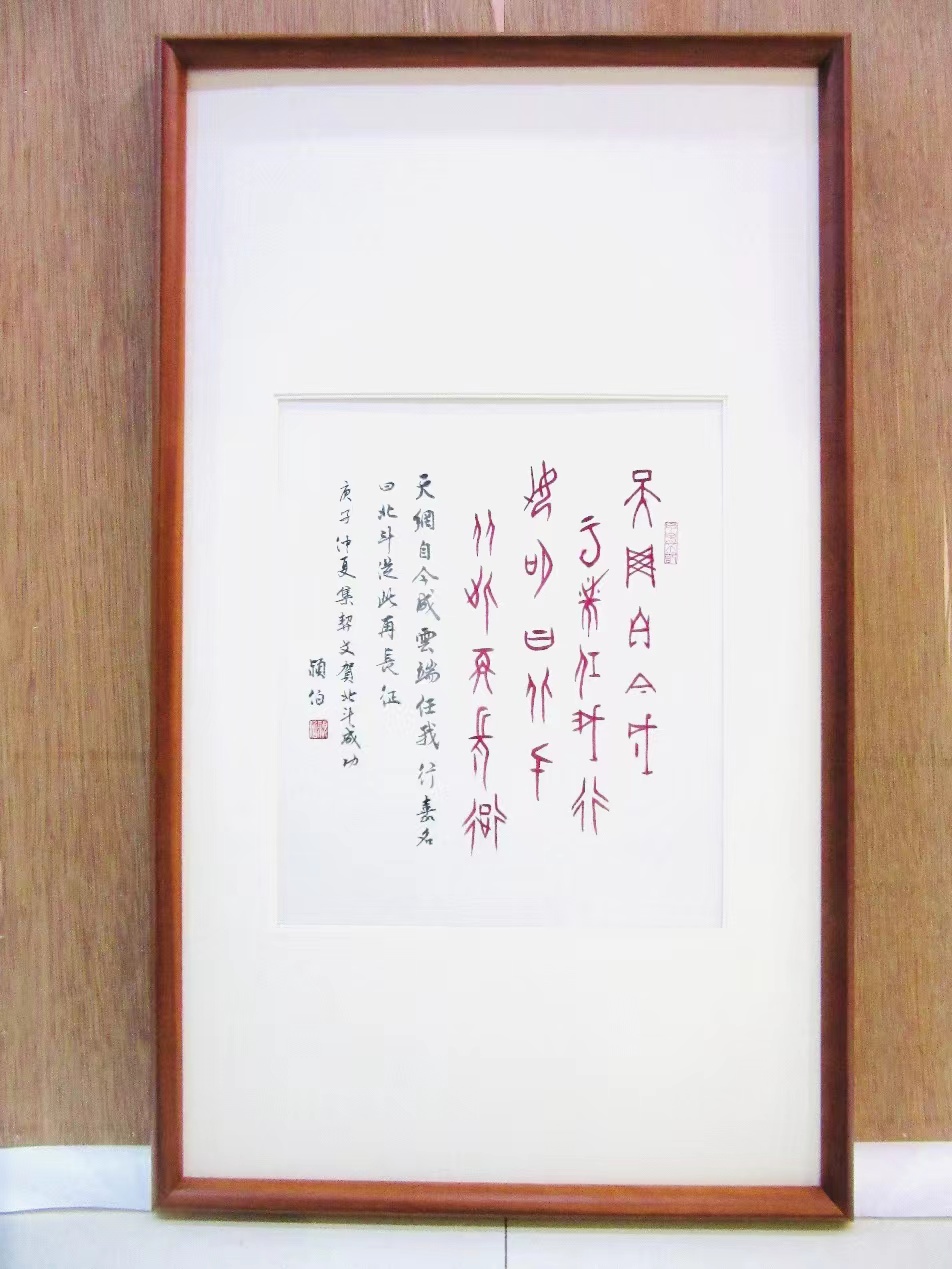 天网自今成
云端任我行
嘉名曰北斗
从此再長征
天網自今成雲端任我行嘉名
曰北斗從此再長征
庚子仲夏集契文賀北斗成功